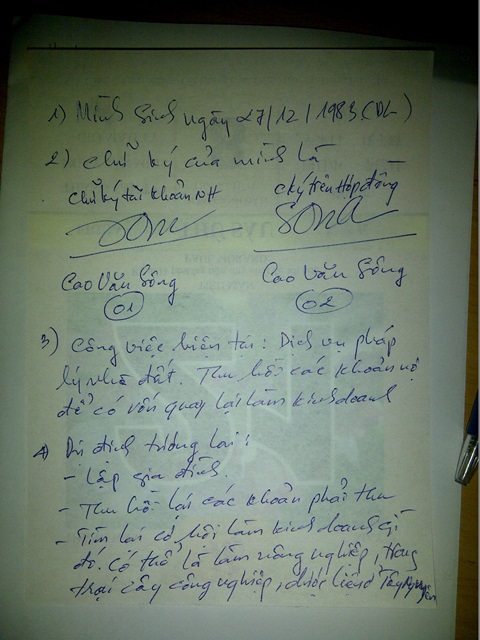 1) Mình sinh ngày 27/12/1983 (DL)
2) chữ ký của mình là
chữ ký tài khoản NH cký trên Hợp đồng
Sông SôNg
Cao Văn Sông Cao Văn Sông
01 02
3) Công việc hiện tại: Dịch vụ pháp
lý nhà đất. Thu hồi các khoản nợ
để có vốn quay lại làm kinh doanh
4) Dự định tương lai:
- Lập gia đình.
- Thu hồi lại các khoản phải thu
- Tìm lại cơ hội làm kinh doanh gì
đó. có thể là làm nông nghiệp, trồng
trại cây công nghiệp, dược liệu ở Tây Nguyên